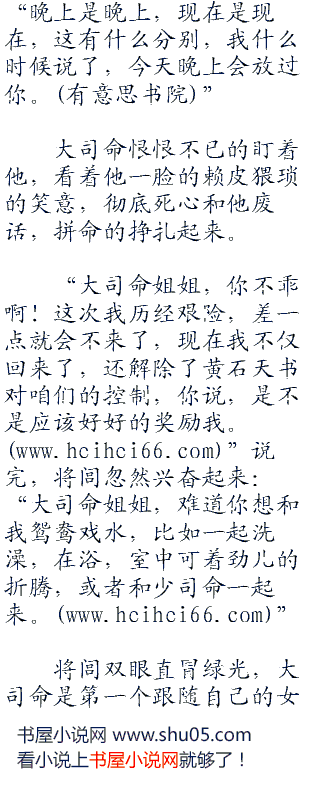 “晚上是晚上，现在是现
在，这有什么分别，我什么
时候说了，今天晚上会放过
你。(有意思书院)”
大司命恨恨不已的盯着
他，看着他一脸的赖皮猥琐
的笑意，彻底死心和他废
话，拼命的挣扎起来。
“大司命姐姐，你不乖
啊！这次我历经艰险，差一
点就会不来了，现在我不仅
回来了，还解除了黄石天书
对咱们的控制，你说，是不
是应该好好的奖励我。
(www.hcihci66.com)”说
完，将闾忽然兴奋起来：
“大司命姐姐，难道你想和
我鸳鸯戏水，比如一起洗
澡，在浴，室中可着劲儿的
折腾，或者和少司命一起
来。(www.hcihci66.com)”
将闾双眼直冒绿光，大
司命是第一个跟随自己的女
书屋小说网 www.shu05.com
看小说上书屋小说网就够了！